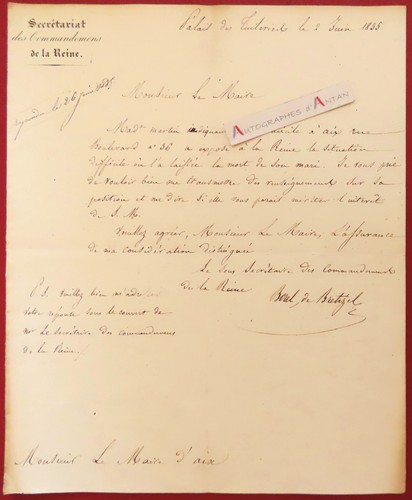 Secrétariat
des Commandemens
de la Reine.
Palais des Tuileries le 2 Juin 1835
le 26 Juin 1835
Monsieur Le Maire
AUTOGRAPHES d'ANTAN
Made martin indiquant domicile à aix rue
Boulevard no 36 a exposé à la Reine la situation
difficile où l'a laissée la mort de son mari. Je vous prie
de vouloir bien me transmettre des renseignemens sur sa
position et me dire si elle vous parait mériter l'intérêt
de S. M.
Veuillez agréer, Monsieur Le Maire, l'assurance
de ma considération distinguée
Le sous Secrétaire des Commandemens
de la Reine
Borel de Bretizel
P.S. Veuillez bien m'adresser
votre réponse sous le couvert de
Mr Le Secrétaire des commandemens
de la Reine.
Monsieur Le Maire d'aix